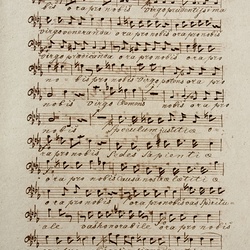 bis ora pro nobis Virgo prudentissima
virgo veneranda ora pro nobis ora pro nobis
virgo praedicanda ora pro nobis ora pro
nobis pro nobis Virgo potens ora pro
nobis virgo Clemens nobis ora pro
nobis Speculum justitiae o-
ra pro nobis Sedes sapientiae
ora pro nobis Causa nostrae laetitiae
ora pro nobis ora pro nobis vas spiritu-
ale vas honorabile ora pro no-